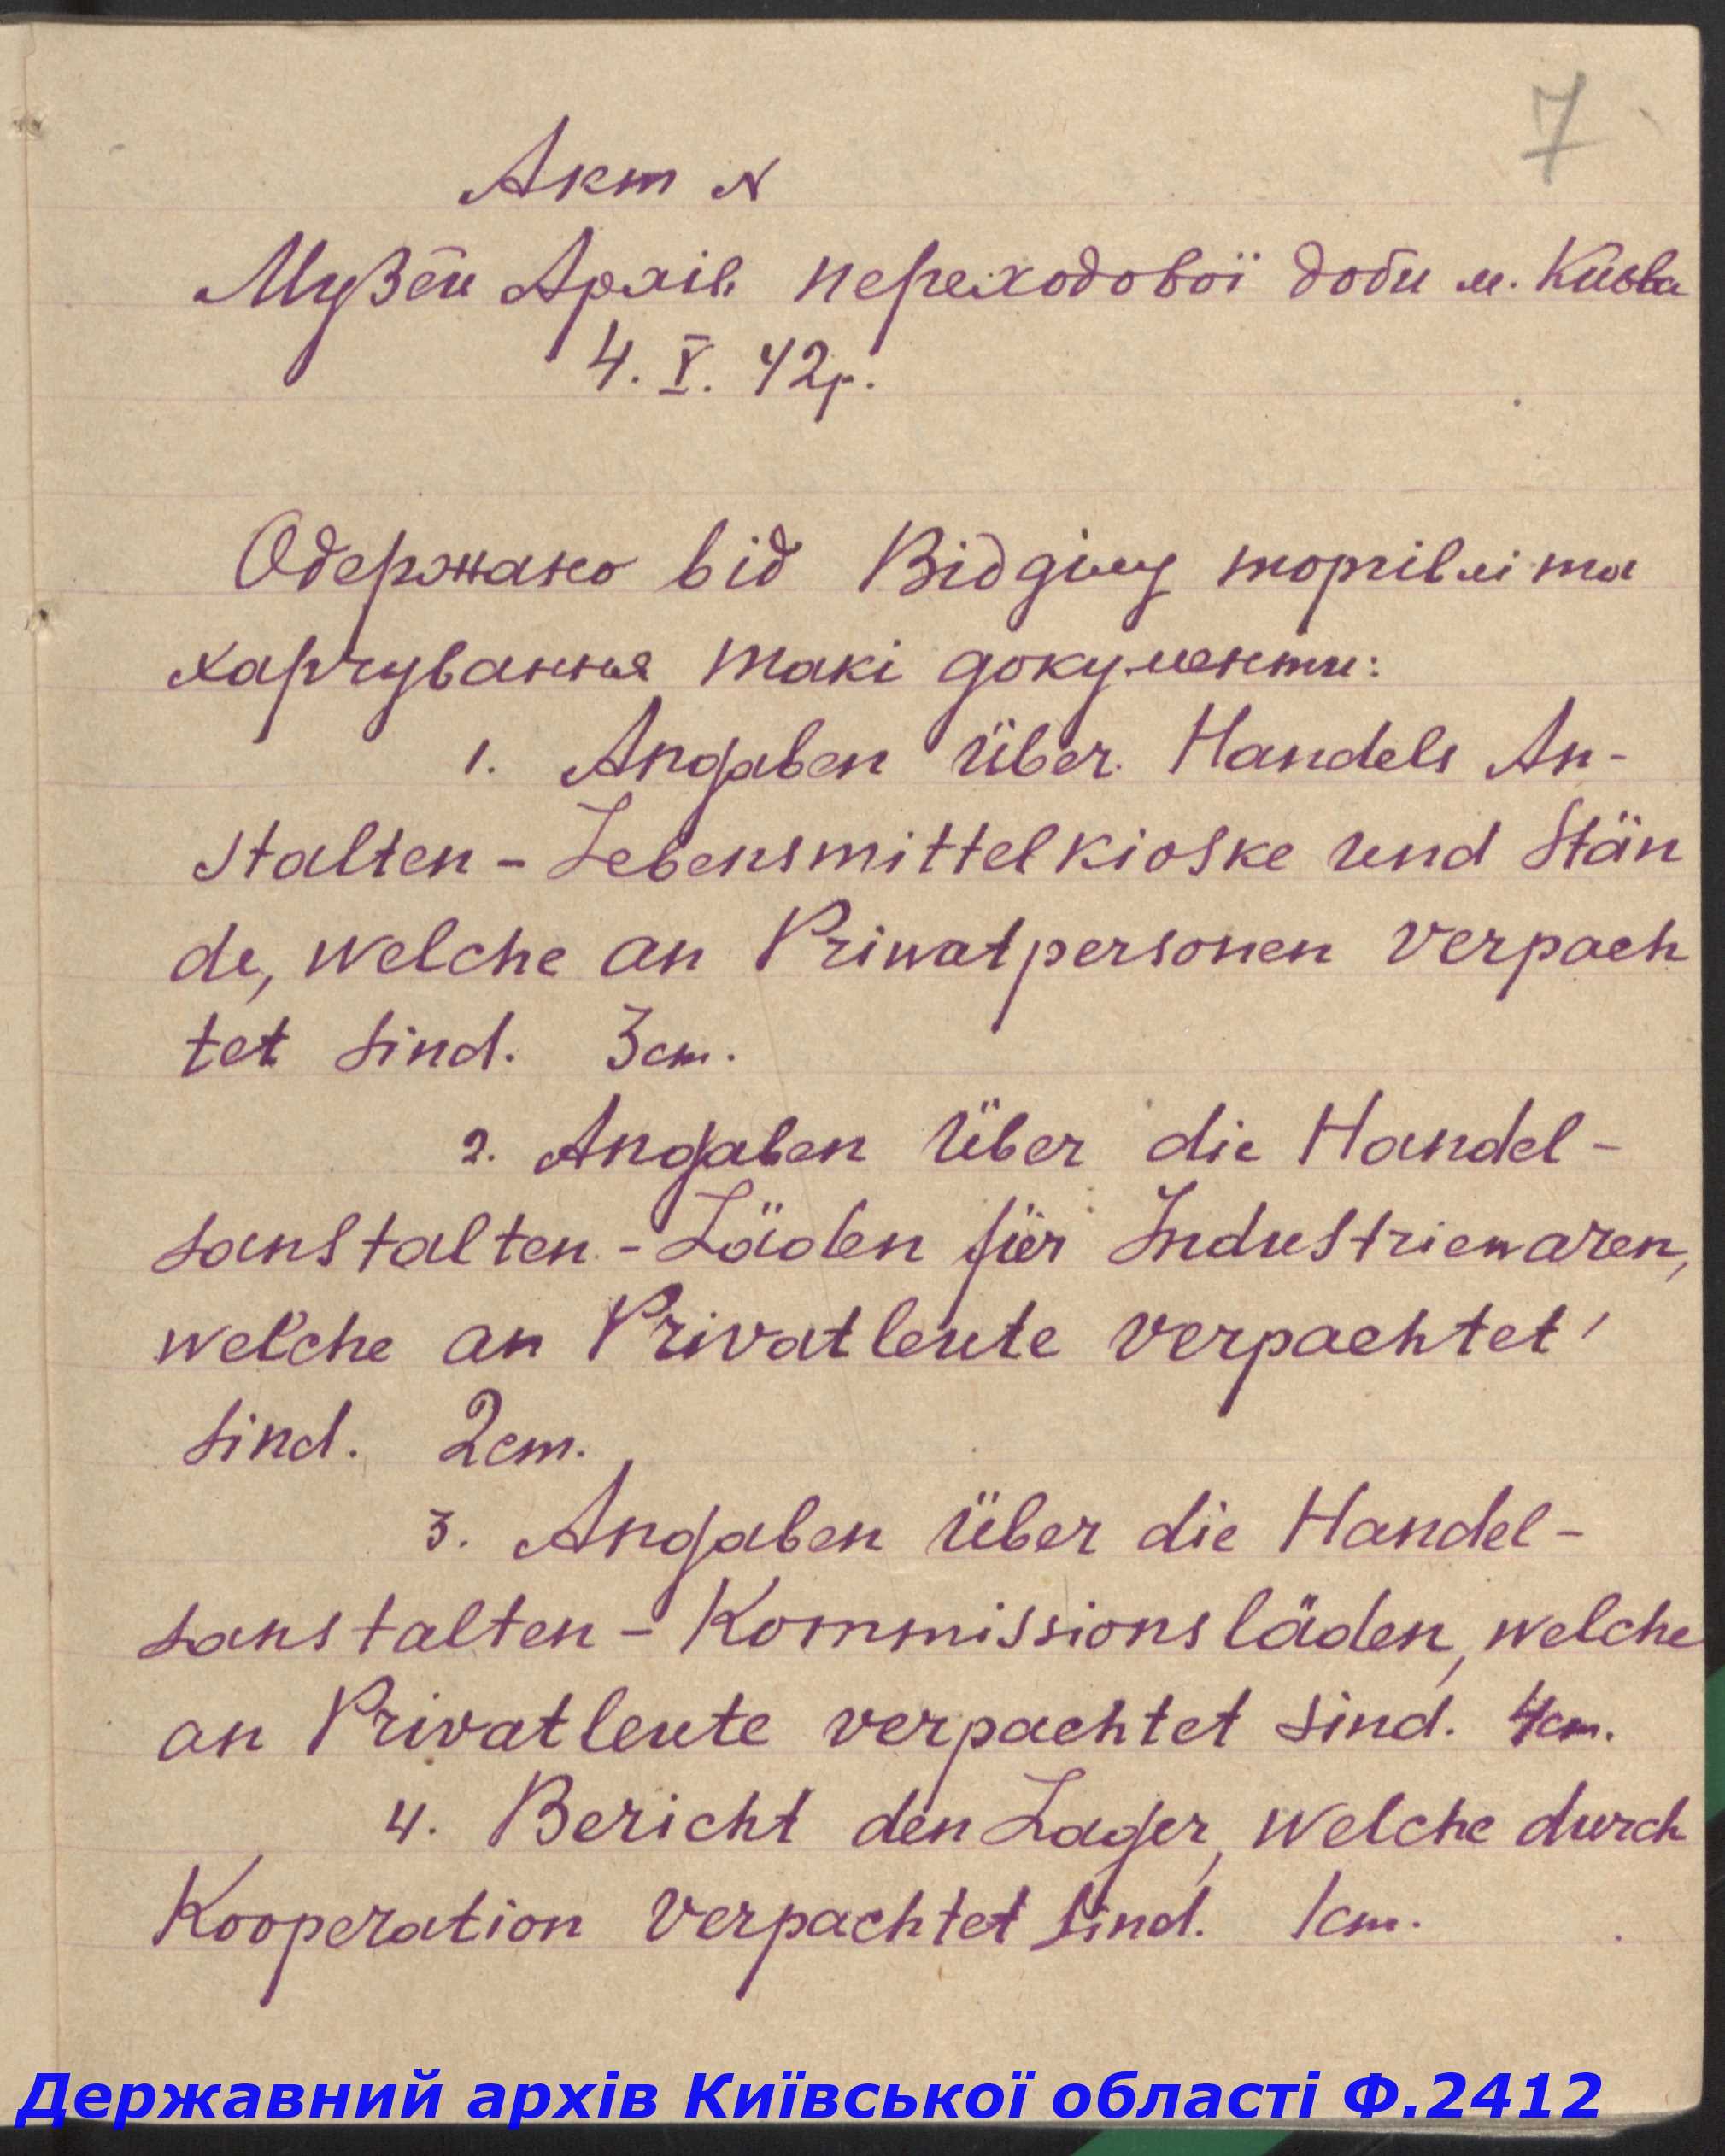 7
Акт №
Музей Архів переходової доби м. Києва
4. V. 42р.
Одержано від Відділу торгівлі та
харчування такі документи:
1. Angaben über Handels An-
stalten - Lebensmittelkioske und Stän
de, welche an Priwatpersonen verpach
tet sind. 3 ст.
2. Angaben über die Handel-
sanstalten - Läden für Industriewaren,
welche an Privatleute verpachtet
sind. 2 ст.
3. Angaben über die Handel-
sanstalten - Kommissionsläden, welche
an Privatleute verpachtet sind. 4 ст.
4. Bericht den Lager, welche durch
Kooperation verpachtet sind. 1 ст.
Державний архів Київської області Ф.2412